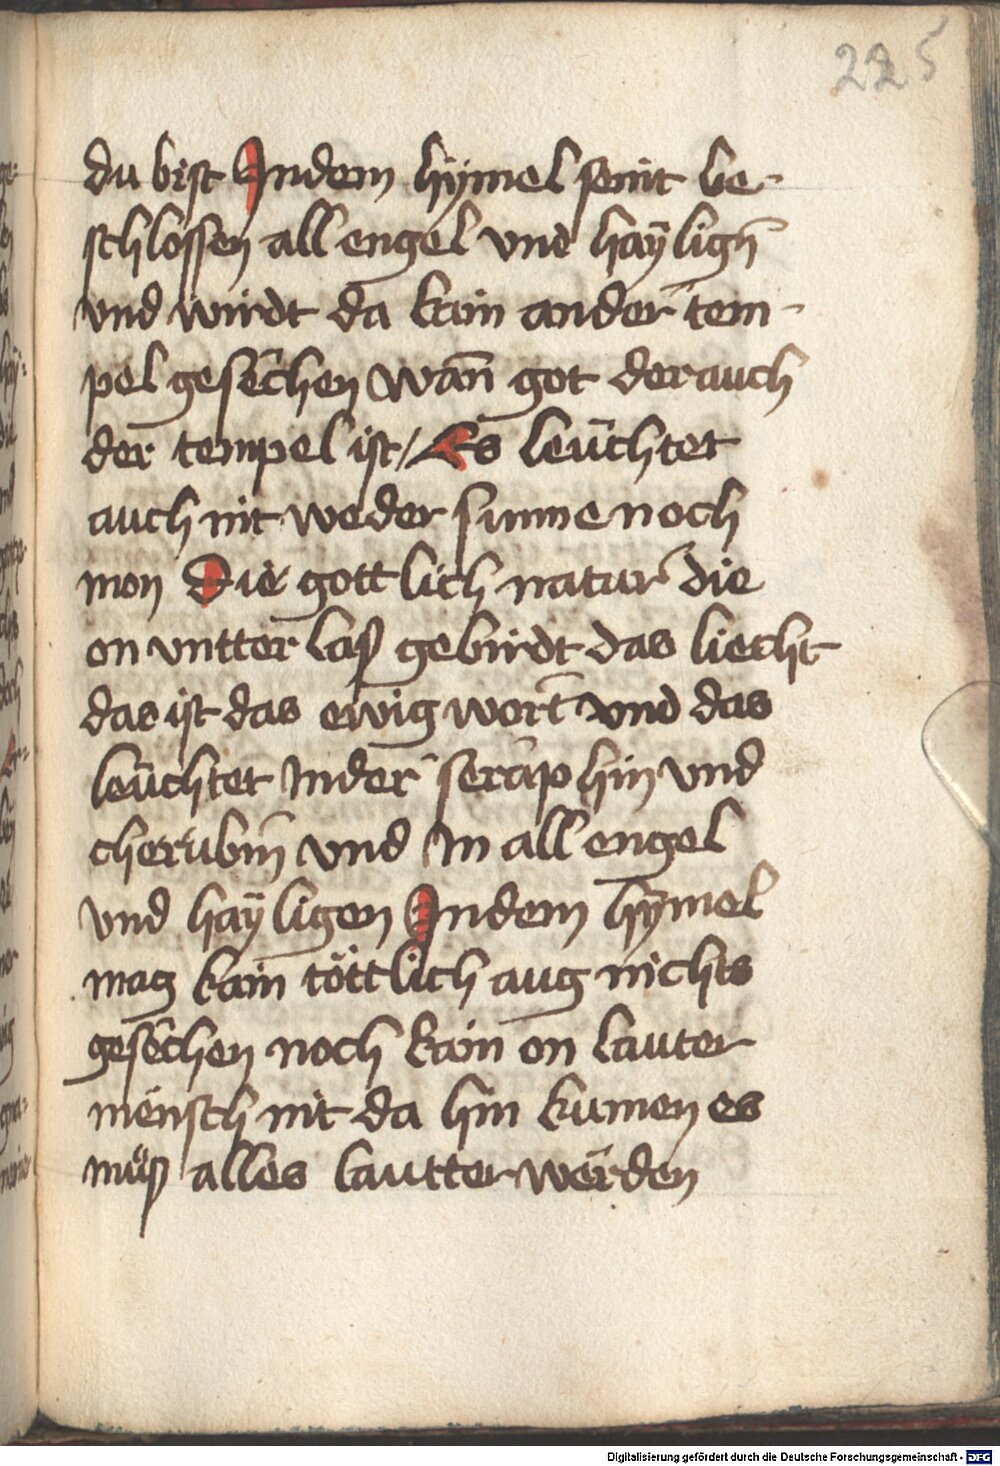 225
du bist Indem hÿmel seint be-
schlossen all engel vnd haÿligñ
vnd wirdt da kain ander tem-
pel gesechen wañ got der auch
der tempel ist / Es leüchtet
auch nit weder sunne noch
mon Die gottlich natur die
on vntter laß gebirdt das liecht
das ist das ewig wort vnd das
leüchtet Inder seraphin vnd
cherubin vnd In all engel
vnd haÿligen Indem hÿmel
mag kain töttlich aug nichts
gesechen noch kain on lauter
mensch nit da hin kumen es
muͤß alles lautter werden
Digitalisierung gefördert durch die Deutsche Forschungsgemeinschaft - DFG